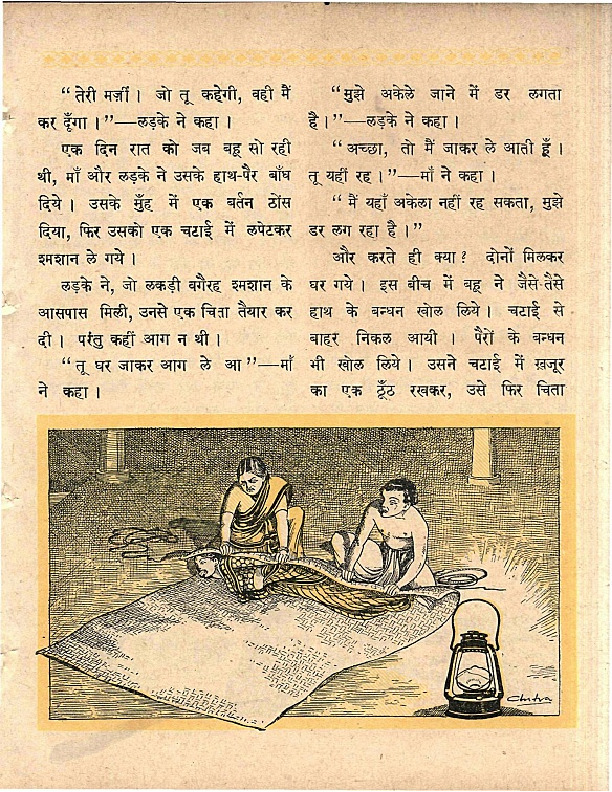 “तेरी मर्ज़ी। जो तू कहेगी, वही मैं
कर दूँगा।”—लड़के ने कहा।
एक दिन रात को जब बहू सो रही
थी, माँ और लड़के ने उसके हाथ-पैर बाँध
दिये। उसके मुँह में एक बर्तन ठोंस
दिया, फिर उसको एक चटाई में लपेटकर
श्मशान ले गये।
लड़के ने, जो लकड़ी वगैरह श्मशान के
आसपास मिली, उनसे एक चिता तैयार कर
दी। परंतु कहीं आग न थी।
“तू घर जाकर आग ले आ”—माँ
ने कहा।
“मुझे अकेले जाने में डर लगता
है।”—लड़के ने कहा।
“अच्छा, तो मैं जाकर ले आती हूँ।
तू यहीं रह।”—माँ ने कहा।
“मैं यहाँ अकेला नहीं रह सकता, मुझे
डर लग रहा है।”
और करते ही क्या? दोनों मिलकर
घर गये। इस बीच में बहू ने जैसे-तैसे
हाथ के बन्धन खोल लिये। चटाई से
बाहर निकल आयी। पैरों के बन्धन
भी खोल लिये। उसने चटाई में ख़जूर
का एक ठूँठ रखकर, उसे फिर चिता
Chitra